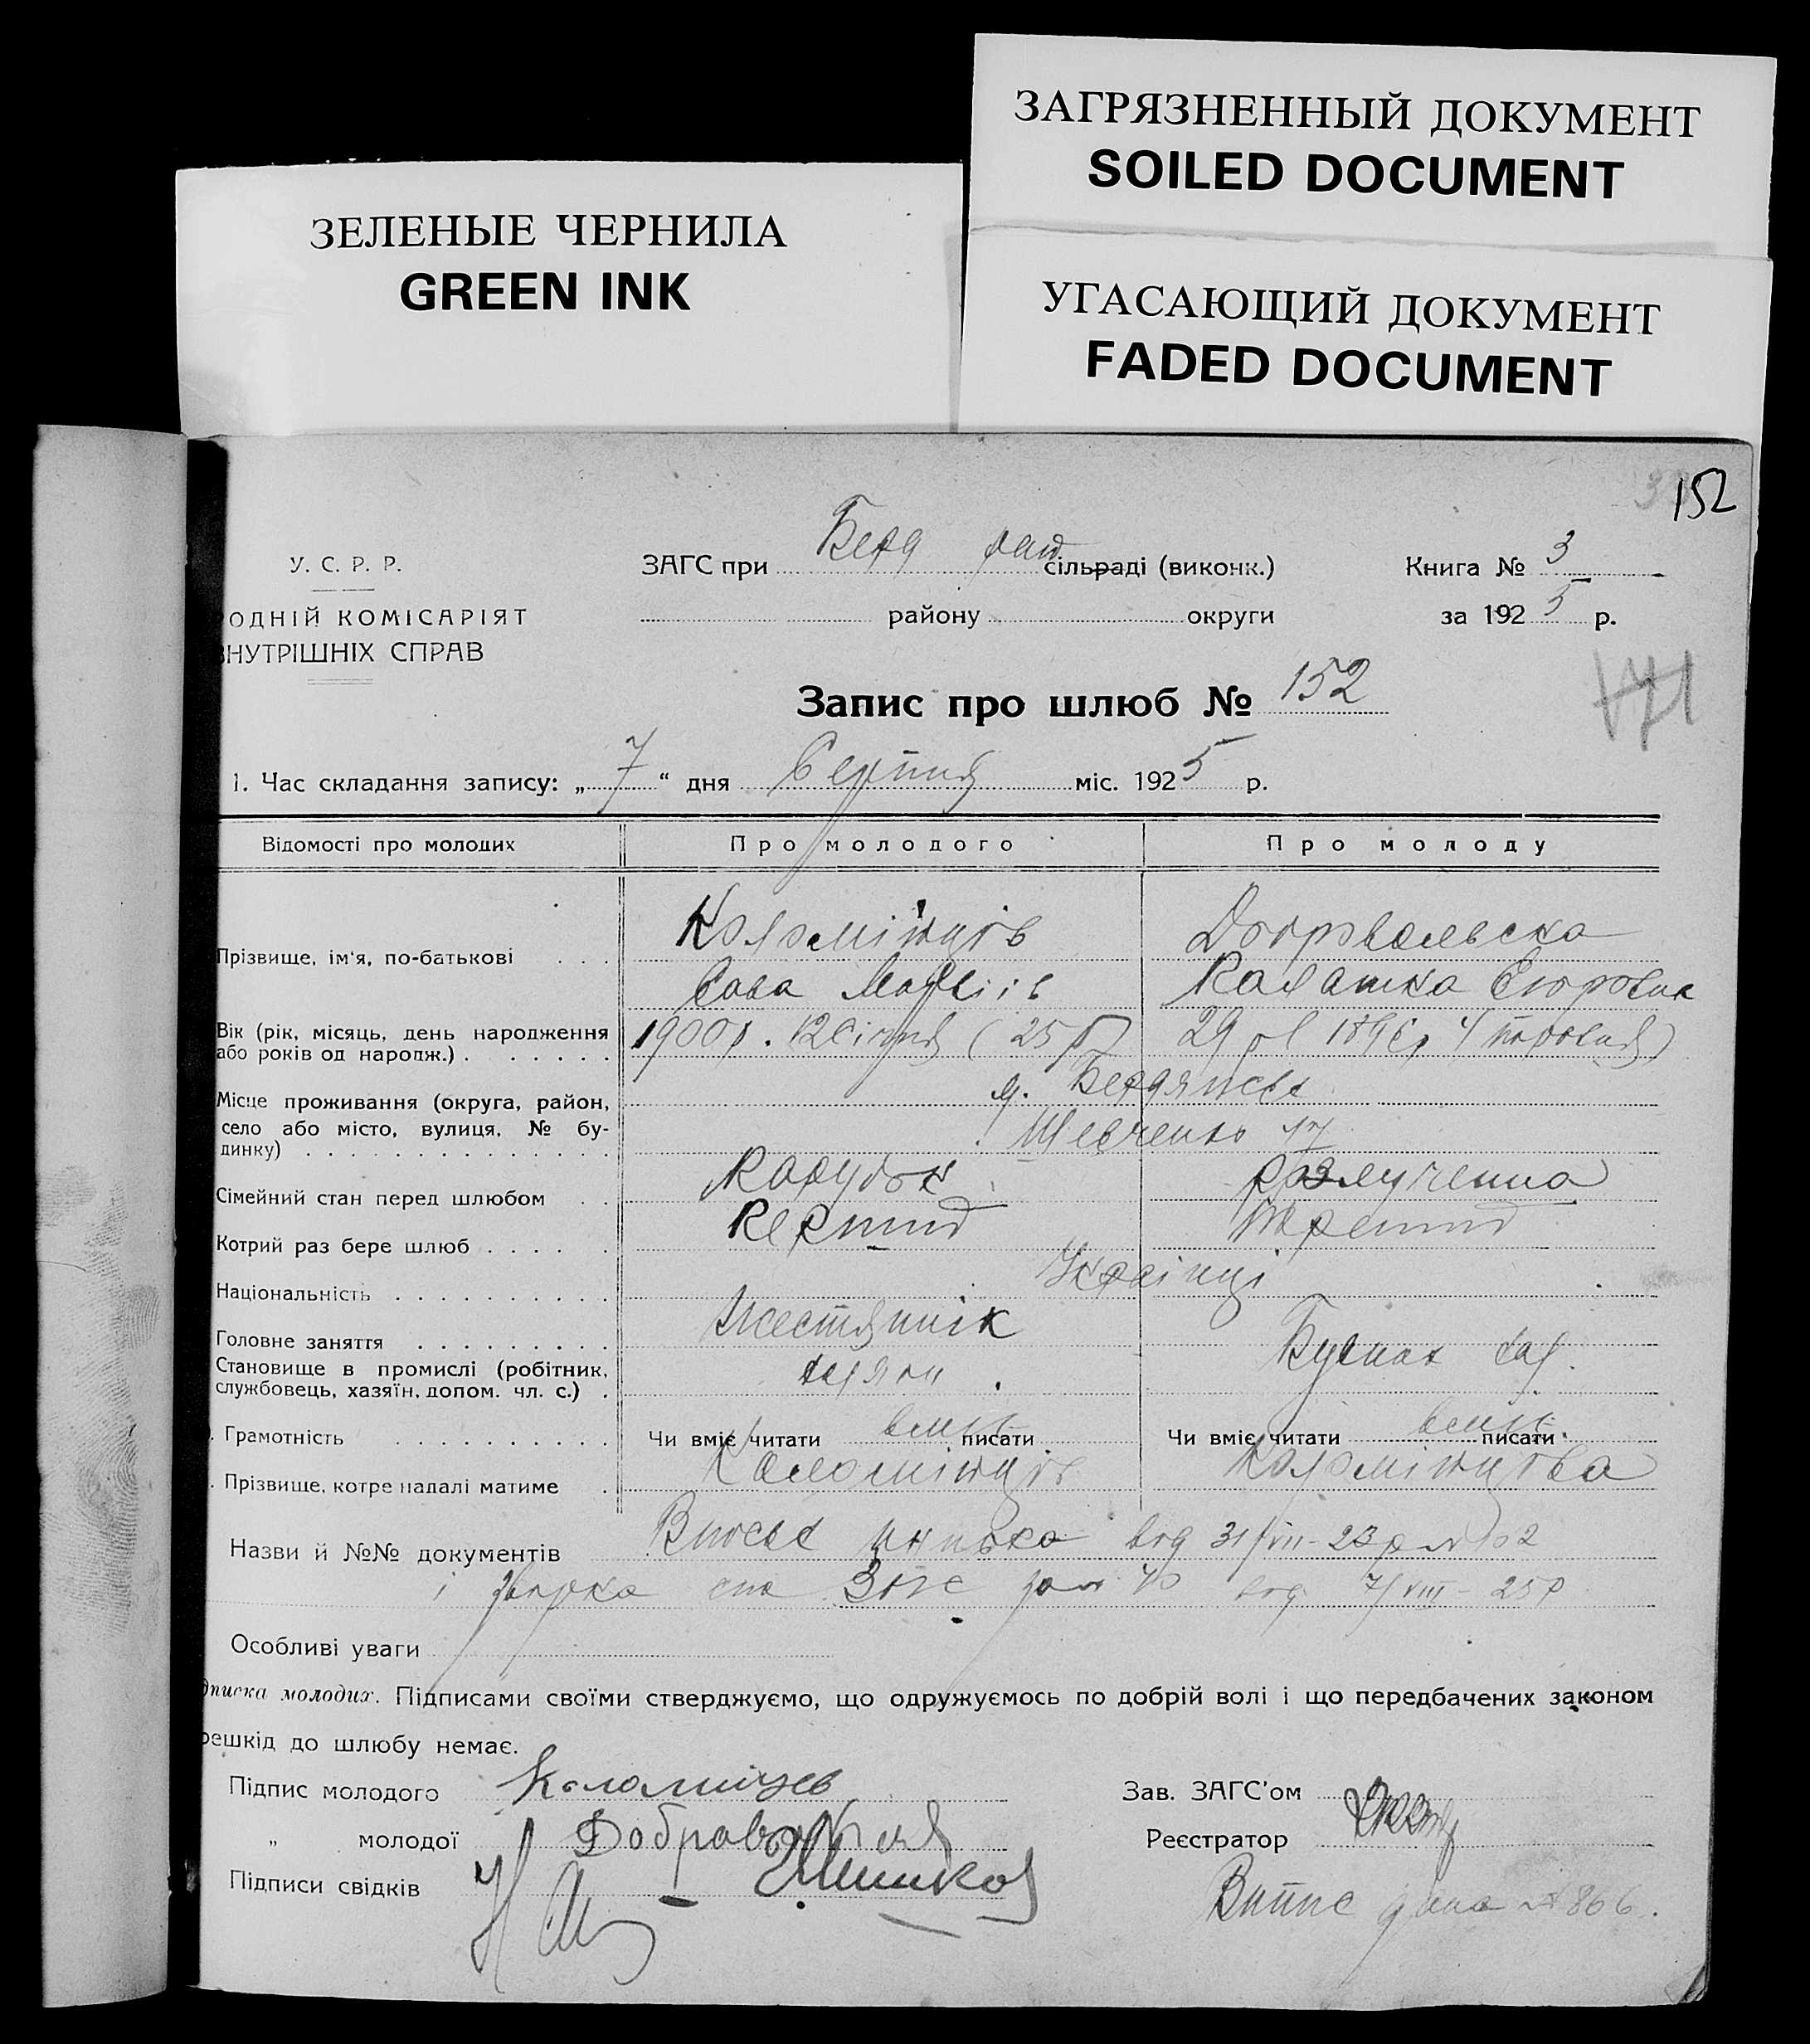 ЗАГРЯЗНЕННЫЙ ДОКУМЕНТ
SOILED DOCUMENT
ЗЕЛЕНЫЕ ЧЕРНИЛА
GREEN INK
УГАСАЮЩИЙ ДОКУМЕНТ
FADED DOCUMENT
152
У. С. Р. Р.
ЗАГС при Берд рай сільраді (виконк.)
Книга № 3
РОДНІЙ КОМІСАРІЯТ
району округи
за 1925 р.
ВНУТРІШНІХ СПРАВ
Запис про шлюб № 152
171
1. Час складання запису: „7“ дня Серпня міс. 1925 р.
Відомості про молодих Про молодого Про молоду
Прізвище, ім'я, по-батькові
Коломійців
Сава
Добровольска
Вік (рік, місяць, день народження або років од народж.)
1900 р. 12 Січня (25 р)
29
Місце проживання (округа, район, село або місто, вулиця, № будинку)
м. Бердянськ
Шевченко 17
Сімейний стан перед шлюбом
Парубок
розлучена
Котрий раз бере шлюб
Перший
Національність
Українці
Головне заняття
Жестяник
Становище в промислі (робітник, службовець, хазяїн, допом. чл. с.)
хазяїн
Грамотність
Чи вміє читати вміє писати
Чи вміє читати вміє писати
Прізвище, котре надалі матиме
Коломійців
Коломійцева
Назви й №№ документів
від 31/VII-23 р № 102
і Загс від 7/VIII-25 р
Особливі уваги
дписка молодих. Підписами своїми стверджуємо, що одружуємось по добрій волі і що передбачених законом
решкід до шлюбу немає.
Підпис молодого Коломийцев
Зав. ЗАГС'ом
„ молодої
Реєстратор
Підписи свідків
Витяг дана № 806.